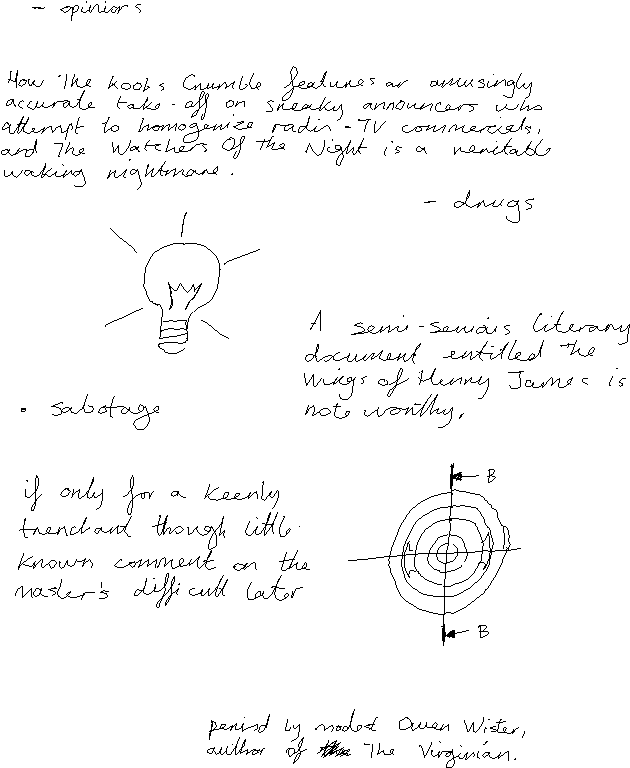 - opinions
How The Roots Crumble features an amusingly
accurate take-off on sneaky announcers who
attempt to homogenize radio-TV commercials,
and The Watchers Of the Night is a veritable
waking nightmare.
- drugs
A semi-serious literary
document entitled The
Wings of Henry James is
note worthy,
• sabotage
B
if only for a keenly
trenchant though little
known comment on the
master's difficult later
B
period by modest Owen Wister,
author of The Virginian.